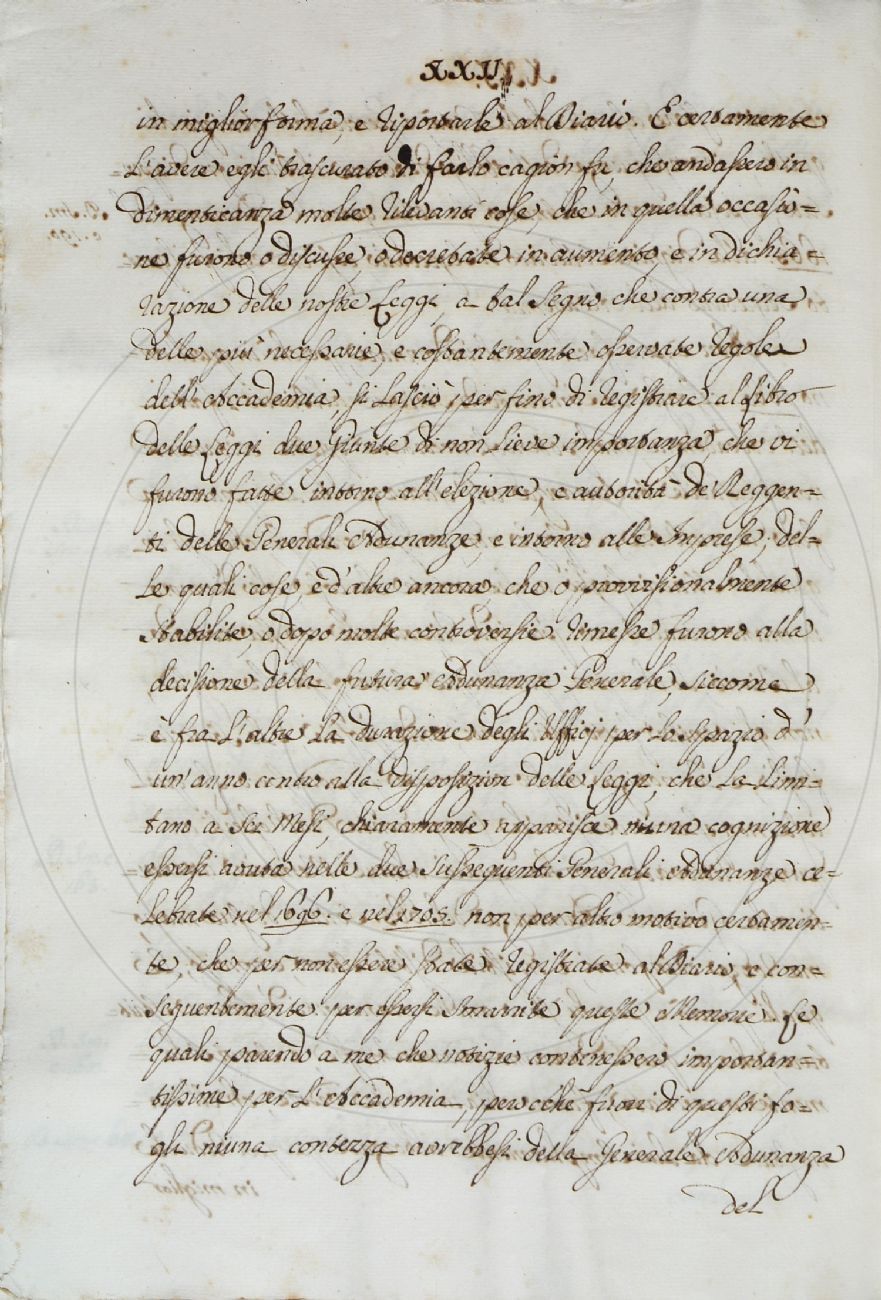 XXII
in miglior forma, e riportarle al Diario. E certamente
l'avere egli trascurato di farlo cagion fu, che andassero in
dimenticanza molte rilevanti cose, che in quella occasio=
ne furono o discusse, o decretate in aumento, e in dichia=
razione delle nostre Leggi, a tal segno che contra una
delle più necessarie, e costantemente osservate regole
dell'Accademia si lasciò per fino di registrare al Libro
delle Leggi due Giunte di non lieve importanza, che vi
furono fatte intorno all'elezione, e autorità de' Reggen=
ti delle Generali Adunanze, e intorno alle Imprese; del=
le quali cose, e d'altre ancora, che o provvisionalmente
stabilite, o dopo molte controversie rimesse furono alla
decisione della futura Adunanza Generale, siccome
è fra l'altre la durazione degli Uffici per lo spazio d'
un'anno contro alla disposizion delle Leggi, che la limi=
tano a sei Mesi, chiaramente apparisce niuna cognizione
essersi avuta nelle due susseguenti Generali Adunanze ce=
lebrate nel 1696. e nel 1705. non per altro motivo certamen=
te, che per non essere state registrate al Diario, e con=
seguentemente per essersi smarrite queste Memorie. Le
quali parendo a me che notizie contenessero importan=
tissime per l'Accademia, perocchè fuori di questi fo=
gli niuna contezza avrebbesi della Generale Adunanza
del